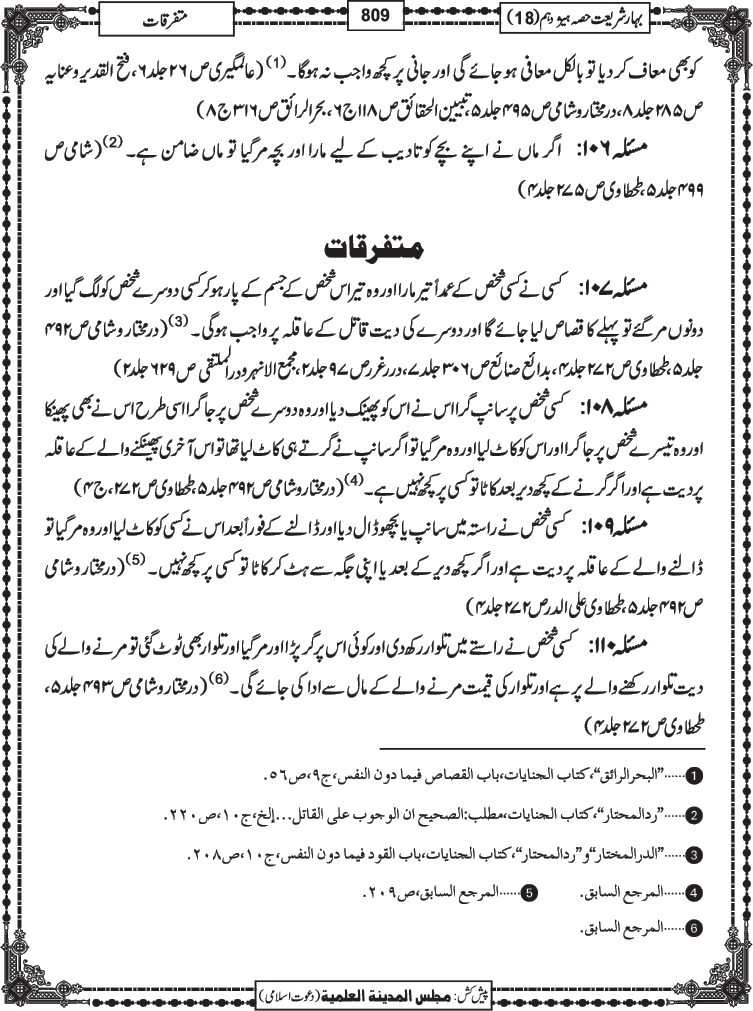 بہار شریعت حصہ ہیژدہم (18)
809
متفرقات
کو بھی معاف کر دیا تو بالکل معافی ہو جائے گی اور جانی پر کچھ واجب نہ ہوگا۔(1) (عالمگیری ص۲۶ جلد۶، فتح القدیر و عنایہ
ص۲۸۵ جلد۸، درمختار و شامی ص۴۹۵ جلد۵، تبیین الحقائق ص۱۱۸ ج۶، بحر الرائق ص۳۱۶ ج۸)
مسئلہ ۱۰۶: اگر ماں نے اپنے بچے کو تادیب کے لیے مارا اور بچہ مر گیا تو ماں ضامن ہے۔(2) (شامی ص
۴۹۹ جلد۵، طحطاوی ص۲۷۵ جلد۴)
متفرقات
مسئلہ ۱۰۷: کسی نے کسی شخص کے عمداً تیر مارا اور وہ تیر اس شخص کے جسم کے پار ہو کر کسی دوسرے شخص کو لگ گیا اور
دونوں مر گئے تو پہلے کا قصاص لیا جائے گا اور دوسرے کی دیت قاتل کے عاقلہ پر واجب ہوگی۔(3) (درمختار و شامی ص۴۹۲
جلد۵، طحطاوی ص۲۷۲ جلد۴، بدائع صنائع ص۳۰۶ جلد۷، درر غرر ص۹۷ جلد۲، مجمع الانہر و در الملتقی ص۶۲۹ جلد۲)
مسئلہ ۱۰۸: کسی شخص پر سانپ گرا اس نے اس کو پھینک دیا اور وہ دوسرے شخص پر جا گرا اسی طرح اس نے بھی پھینکا
اور وہ تیسرے شخص پر جا گرا اور اس کو کاٹ لیا اور وہ مر گیا تو اگر سانپ نے گرتے ہی کاٹ لیا تھا تو اس آخری پھینکنے والے کے عاقلہ
پر دیت ہے اور اگر گرنے کے کچھ دیر بعد کاٹا تو کسی پر کچھ نہیں ہے۔(4) (درمختار و شامی ص۴۹۲ جلد۵، طحطاوی ص۲۷۲، ج۴)
مسئلہ ۱۰۹: کسی شخص نے راستہ میں سانپ یا بچھو ڈال دیا اور ڈالنے کے فوراً بعد اس نے کسی کو کاٹ لیا اور وہ مر گیا تو
ڈالنے والے کے عاقلہ پر دیت ہے اور اگر کچھ دیر کے بعد یا اپنی جگہ سے ہٹ کر کاٹا تو کسی پر کچھ نہیں۔(5) (درمختار و شامی
ص۴۹۲ جلد۵، طحطاوی علی الدر ص۲۷۲ جلد۴)
مسئلہ ۱۱۰: کسی شخص نے راستے میں تلوار رکھ دی اور کوئی اس پر گر پڑا اور مر گیا اور تلوار بھی ٹوٹ گئی تو مرنے والے کی
دیت تلوار رکھنے والے پر ہے اور تلوار کی قیمت مرنے والے کے مال سے ادا کی جائے گی۔(6) (درمختار و شامی ص۴۹۳ جلد۵،
طحطاوی ص۲۷۲ جلد۴)
1 ......"البحرالرائق"،کتاب الجنایات،باب القصاص فیما دون النفس،ج۹،ص۵۶.
2 ......"ردالمحتار"،کتاب الجنایات،مطلب:الصحیح ان الوجوب علی القاتل...إلخ،ج۱۰،ص۲۲۰.
3 ......"الدرالمختار"و"ردالمحتار"،کتاب الجنایات،باب القود فیما دون النفس،ج۱۰،ص۲۰۸.
4 ......المرجع السابق. 5 ......المرجع السابق،ص۲۰۹.
6 ......المرجع السابق.
پیش کش: مجلس المدینة العلمیة (دعوت اسلامی)